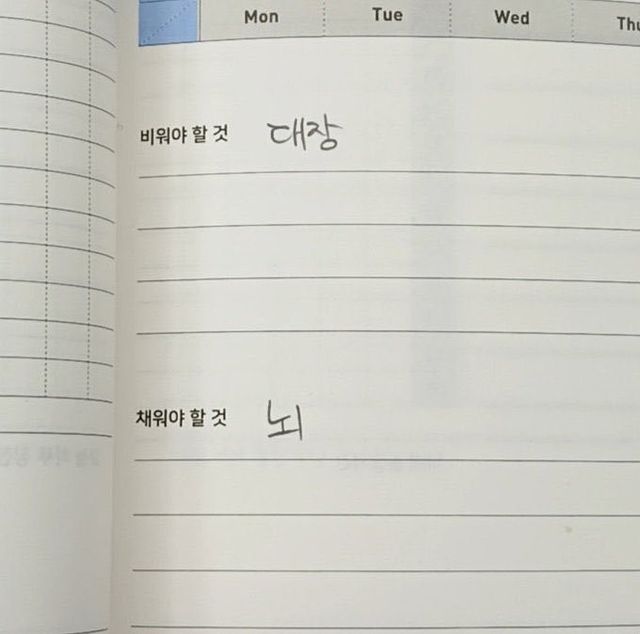 Mon Tue Wed Thu
비워야 할 것 대장
채워야 할 것 뇌